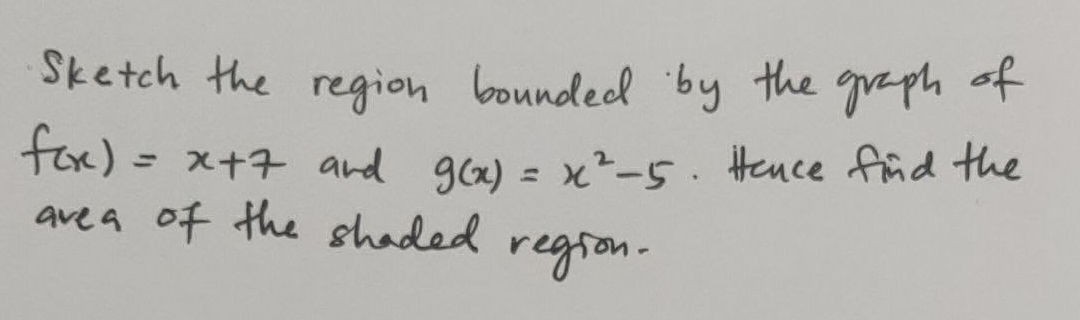 Sketch the region bounded by the graph of
f(x) = x+7 and g(x) = x²-5. Hence find the
area of the shaded region.